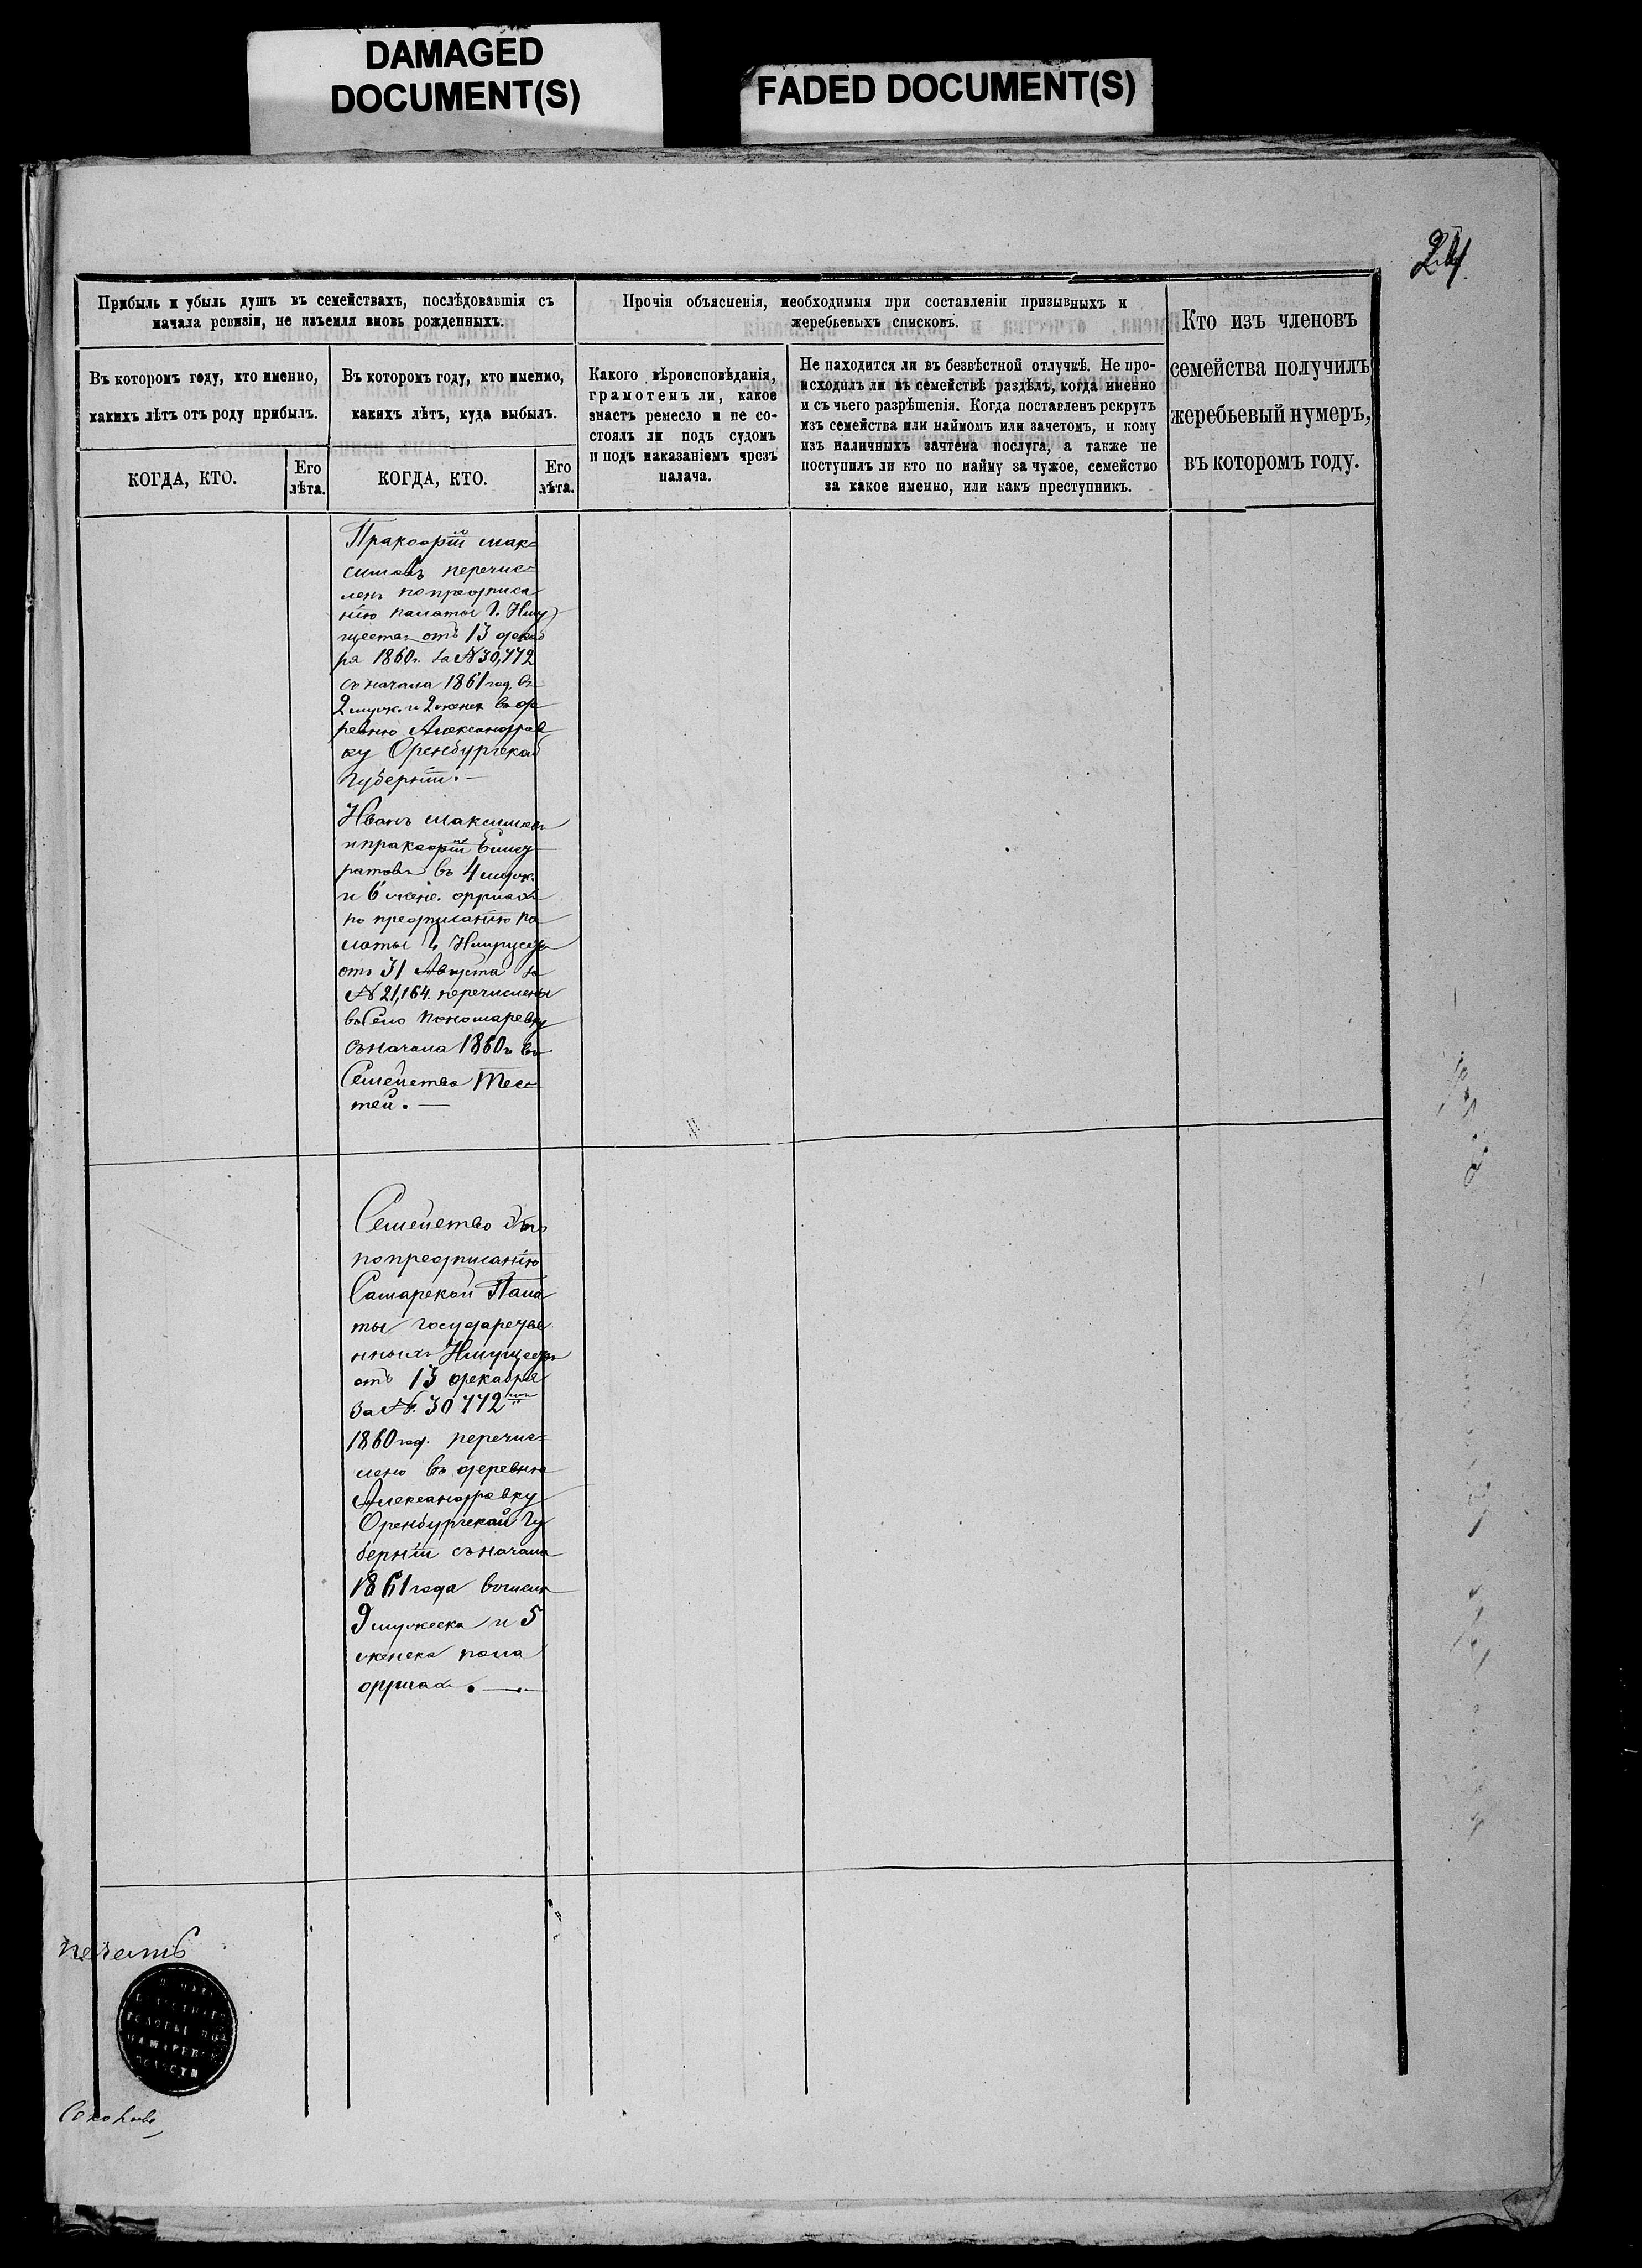 DAMAGED
DOCUMENT(S)
FADED DOCUMENT(S)
24
Прибыль и убыль душъ въ семействахъ, послѣдовавшія съ
начала ревизіи, не изъемля вновь рожденныхъ.
Въ которомъ году, кто именно,
какихъ лѣтъ отъ роду прибылъ.
Въ которомъ году, кто именно,
какихъ лѣтъ, куда выбылъ.
КОГДА, КТО.
Его
лѣта.
КОГДА, КТО.
Его
лѣта.
Прочія объясненія, необходимыя при составленіи призывныхъ и
жеребьевыхъ списковъ.
Какого вѣроисповѣданія,
грамотенъ ли, какое
знаетъ ремесло и не со-
стоялъ ли подъ судомъ
и подъ наказаніемъ чрезъ
палача.
Не находится ли въ безвѣстной отлучкѣ. Не про-
исходилъ ли въ семействѣ раздѣлъ, когда именно
и съ чьего разрѣшенія. Когда поставленъ рекрутъ
изъ семейства или наймомъ или зачетомъ, и кому
изъ наличныхъ зачтена послуга, а также не
поступилъ ли кто по найму за чужое, семейство
за какое именно, или какъ преступникъ.
Кто изъ членовъ
семейства получилъ
жеребьевый нумеръ,
въ которомъ году.
мак=
симовъ перечис=
ленъ по предписа
нію палаты Г. Иму
ществъ отъ 13 декаб
ря 1860 г. за № 30,772
съ начала 1861 год. въ
2 муж. и 2 женск въ де
ревню Александров
ку Оренбургской
Губерніи. —
Иванъ Максимовъ
въ 4 муж.
и 6 жене. душахъ
по предписанію па
латы Г. Имуществъ
отъ 31 Августа за
№ 21,164. перечислены
въ Село Пономаревку
съ начала 1860 г. въ
Семейства Тес=
тей. —
Семейство это
по предписанію
Самарской Пала
ты Государстве
нныхъ Имуществъ
отъ 13 декабря
За №. 30772
1860 год. перечис=
лено въ деревню
Александровку
Оренбургской Гу
берніи съ начала
1861 года въ числѣ
9 мужеска и 5
женска пола
душахъ. —
печать
ВОЛОСТИ